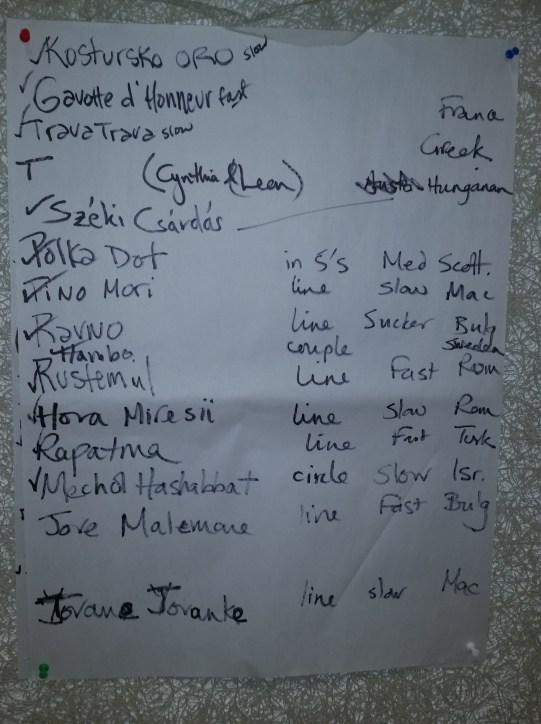 Kostursko ORO slow
Gavotte d'Honneur fast
Trava Trava slow Frana
T (Cynthia & Leen) Greek
Széki Csárdás Hunganan
Polka Dot in 5's Med Scott.
Pino Mori line slow Mac
Ravno line Sucker Bulg
Hambo couple Sweden
Rustemul line Fast Rom
Hora Miresii line slow Rom
Rapatma line Fast Turk
Mechol Hashabbat circle slow Isr.
Jove Malemore line Fast Bulg
Jovane Jovanke line slow Mac